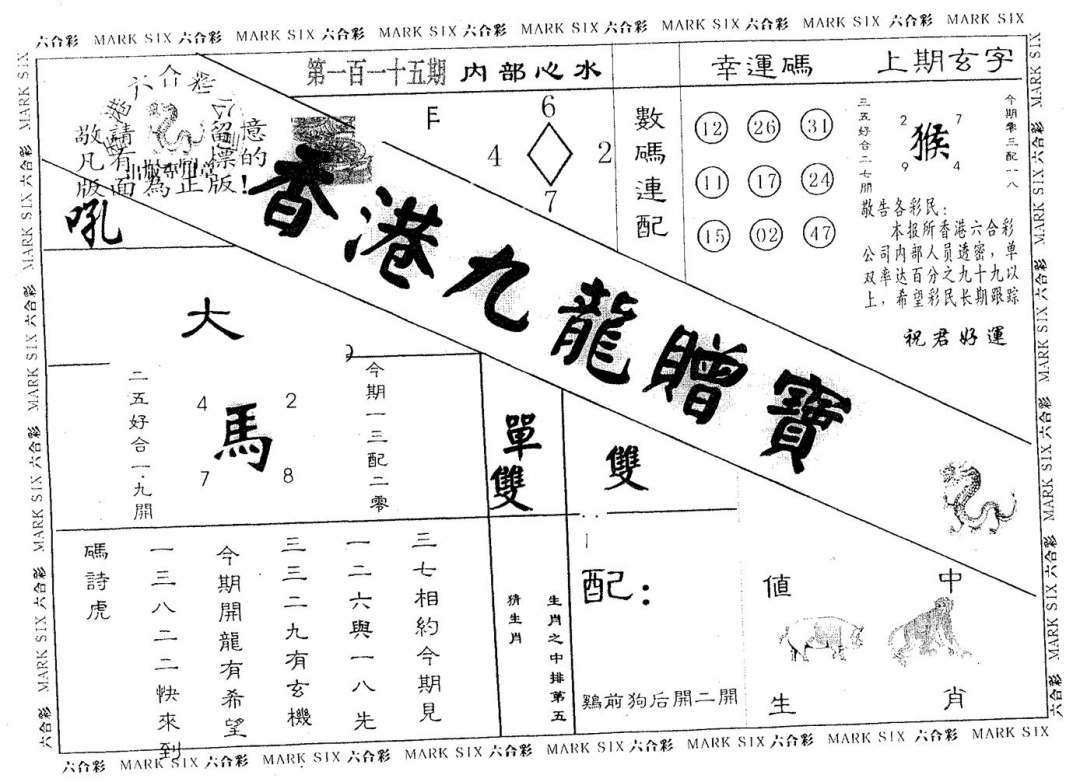 六合彩 MARK SIX 六合彩 MARK SIX 六合彩 MARK SIX 六合彩 MARK SIX 六合彩 MARK SIX 六合彩 MARK SIX 六合彩 MARK SIX
第一百一十五期 内部心水
幸運碼
上期玄字
六合彩
敬請留意
凡有標的
版面為正版!
吼
E
6
4 2
7
數碼連配
12 26 31
11 17 24
15 02 47
三五好合二七開
2 7
猴
9 4
今期零三配一八
敬告各彩民:
本报所香港六合彩
公司内部人员透密,单
双率达百分之九十九以
上,希望彩民长期跟踪
祝君好運
香港九龍贈寶
大
二五好合一.九開
4 2
馬
7 8
今期一三配二零
單雙
雙
三七相約今期見
一二六與一八先
三三二九有玄機
今期開龍有希望
一三八二二快來到
碼詩虎
生肖之中排第五
猜生肖
配:
鷄前狗后開二開
值 中
生 肖
六合彩 MARK SIX 六合彩 MARK SIX 六合彩 MARK SIX 六合彩 MARK SIX 六合彩 MARK SIX 六合彩 MARK SIX 六合彩 MARK SIX